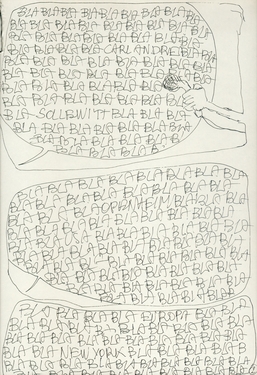 BLA BLA BLA BLA BLA BLA BLA
BLA BLA BLA BLA BLA BLA BLA BLA
BLA BLA BLA BLA BLA BLA BLA BLA
BLA BLA BLA CARL ANDRE BLA
BLA BLA BLA BLA BLA BLA BLA
BLA BLA BLA BLA BLA BLA
BLA BLA BLA BLA BLA BLA
BLA SOL LEWITT BLA BLA BLA
BLA BLA BLA BLA BLA BLA BLA
BLA BLA BLA BLA BLA BLA
BLA BLA BLA BLA B
BLA BLA BLA BLA BLA BLA
BLA BLA BLA BLA BLA BLA BLA
BLA BLA BLA BLA BLA BLA BLA
BLA BLA OPPENHEIM BLA BLA
BLA BLA BLA BLA BLA BLA BLA
BLA BLA BLA BLA BLA BLA BLA
BLA BLA BLA BLA BLA BLA BLA
BLA BLA BLA BLA BLA BLA
BLA BLA BLA BLA BLA BLA
BLA BLA BLA BLA BLA
BLA BLA BLA EUROPA BLA BLA
BLA BLA BLA BLA BLA BLA BLA
BLA BLA NEW YORK BLA BLA BLA B
BLA BLA BLA BLA BLA BLA BLA